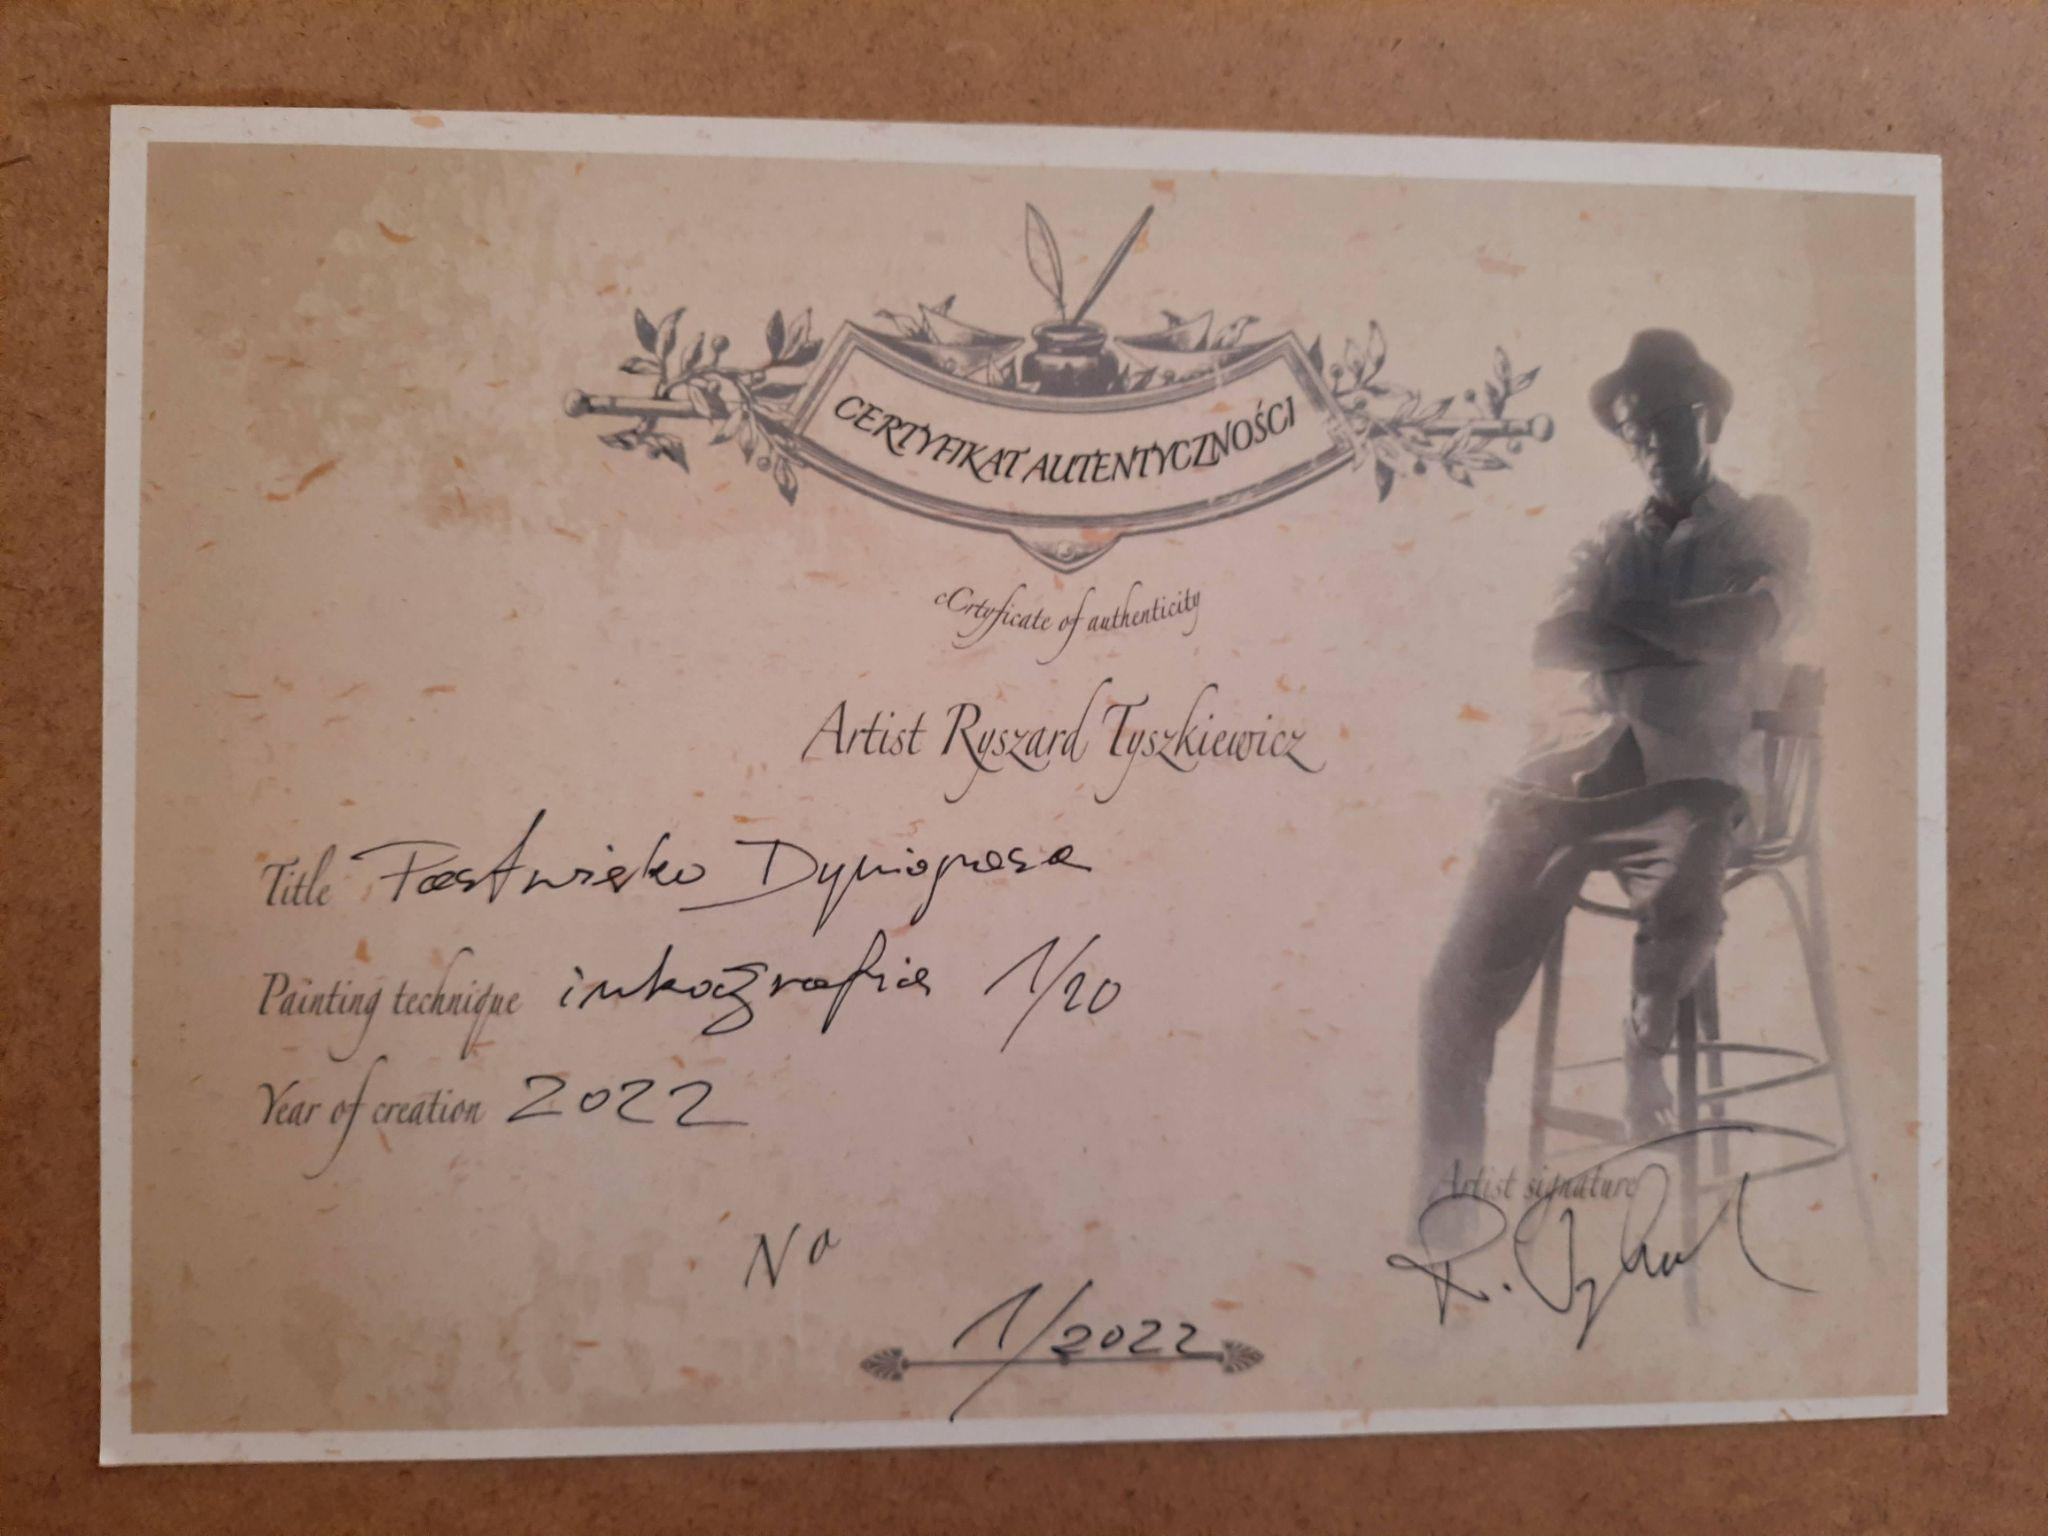 CERTYFIKAT AUTENTYCZNOŚCI
cCrtyficate of authenticity
Artist Ryszard Tyszkiewicz
Title Pastwisko
Painting technique inkografia 1/20
Year of creation 2022
No
1/2022
Artist signature
R.